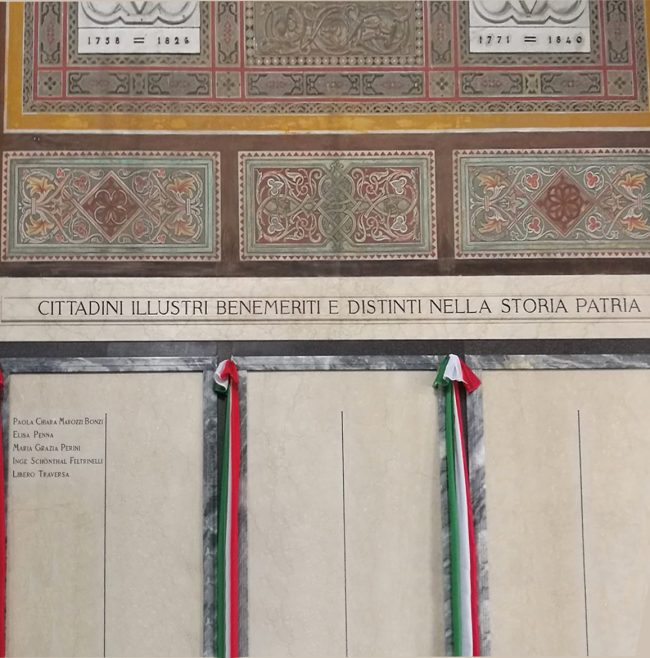 1758 = 1828
1771 = 1840
CITTADINI ILLUSTRI BENEMERITI E DISTINTI NELLA STORIA PATRIA
PAOLA CHIARA MAROZZI BONZI
ELISA PENNA
MARIA GRAZIA PERINI
INGE SCHÖNTHAL FELTRINELLI
LIBERO TRAVERSA